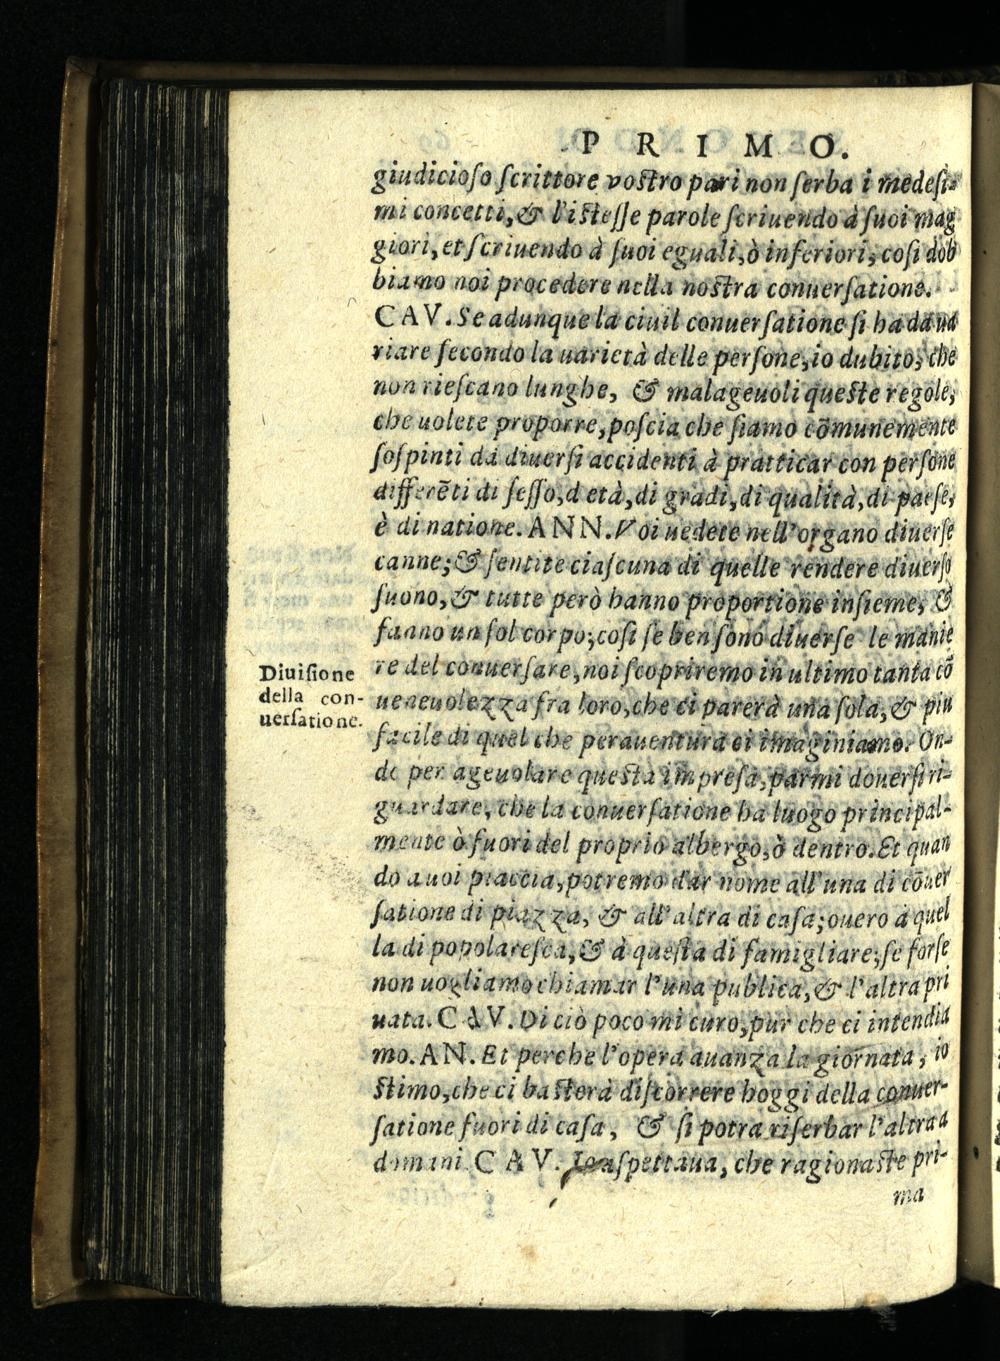 PRIMO.
giudicioſo ſcrittore voſtro pari non ſerba i medeſi-
mi concetti, & l'iſteſſe parole ſcriuendo à ſuoi mag
giori, et ſcriuendo à ſuoi eguali, ò inferiori, coſi dob
biamo noi procedere nella noſtra conuerſatione.
CAV. Se adunque la ciuil conuerſatione ſi ha da ua
riare ſecondo la uarietà delle perſone, io dubito, che
non rieſcano lunghe, & malageuoli queſte regole,
che uolete proporre, poſcia che ſiamo cōmunemente
ſoſpinti da diuerſi accidenti à pratticar con perſone
differēti di ſeſſo, d età, di gradi, di qualità, di paeſe,
è di natione. ANN. Voi uedete nell'organo diuerſe
canne; & ſentite ciaſcuna di quelle rendere diuerſo
ſuono, & tutte però hanno proportione inſieme, &
fanno un ſol corpo; coſi ſe ben ſono diuerſe le manie
re del conuerſare, noi ſcopriremo in ultimo tanta cō
ueneuolezza fra loro, che ci parerà una ſola, & piu
facile di quel che perauentura ci imaginiamo. On-
de per ageuolare queſta impreſa, parmi douerſi ri-
guardare, che la conuerſatione ha luogo principal-
mente ò fuori del proprio albergo, ò dentro. Et quan
do a uoi piaccia, potremo dar nome all'una di cōuer
ſatione di piazza, & all'altra di caſa; ouero à quel
la di popolareſca, & à queſta di famigliare; ſe forſe
non uogliamo chiamar l'una publica, & l'altra pri
uata. CAV. Di ciò poco mi curo, pur che ci intendia
mo. AN. Et perche l'opera auanza la giornata, io
ſtimo, che ci baſterà diſcorrere hoggi della conuer-
ſatione fuori di caſa, & ſi potra riſerbar l'altra a
domani. CAV. Io aſpettaua, che ragionaſte pri-
ma
Diuiſione
della con-
uerſatione.